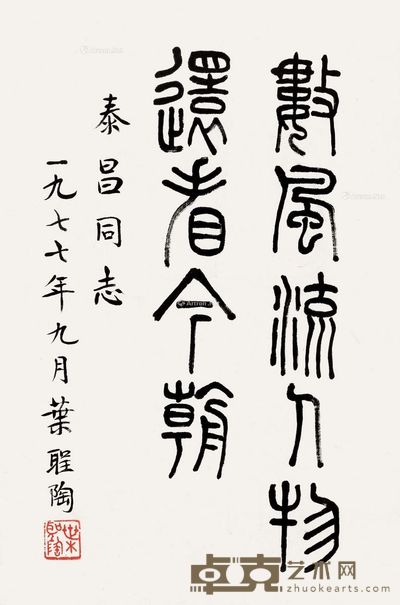 數風流人物
還看今朝
泰昌同志
一九七七年九月葉聖陶
葉聖陶
卓克艺术网
zhuokearts.com